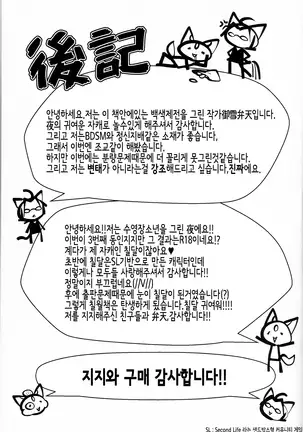 後記
안녕하세요.저는 이 책안에있는 백색제전을 그린 작가御雪弁天입니다.
夜의 귀여운 자캐로 놀수있게 해주셔서 감사합니다.
그리고 저는BDSM과 정신지배같은 소재가 좋습니다,
그래서 이번엔 조교같이 해봤습니다.
하지만 이번에는 분량문제때문에 더 꼴리게 못그린것같습니다.
그리고 저는 변태가 아니라라는걸 강조해드리고 싶습니다.진짜에요.
안녕하세요!!저는 수영장소년을 그린 夜에요!!
이번이 3번째 동인지지만 그 결과는R18이네요!?
게다가 제 자캐인 칠달이잖아요♥
초반에 칠달은SL기반으로 만든 캐릭터인데
이렇게나 모두들 사랑해주셔서 감사합니다.
정말이지 부끄럽네요(///V///)
후에 출판문제때문에 눈이 칠달이 된거였습니다(?)
그렇게 칠월책은 탄생하게 됐습니다. 칠달 귀여워!!!!
저를 지지해주신 친구들과 弁天,감사합니다!!
지지와 구매 감사합니다!!
SL : Second Life 라는 샌드박스형 커뮤니티 게임